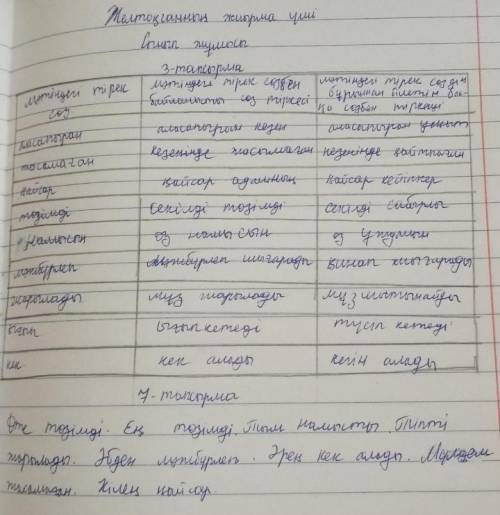 Желтоқсанның жиырма үші
Сынып жұмысы
3-тапсырма
мәтіндегі тірек сөз
мәтіндегі тірек сөзбен байланысты сөз тіркесі
мәтіндегі тірек сөздің бұрыннан білетін басқа сөзбен тіркесуі
аласапыран
аласапыран кезең
аласапыран уақыт
жасымаған
кезеңінде жасымаған
кезеңінде қайтпаған
қайсар
қайсар адамның
қайсар кейіпкер
төзімді
секілді төзімді
секілді сабырлы
Намысын
өз намысын
өз
мәжбүрлеп
мәжбүрлеп шығарады
қинап шығарады
жарылады
мұз жарылады
мұз шытынайды
ығып
ығып кетеді
түсіп кетеді
кек
кек алады
кегін алады
7-тапсырма
Өте төзімді. Ең төзімді. Тым намысты. Тіпті
жарылады. Әбден мәжбүрлеп. Әрең кек алады. Мүлдем
жасымаған. Кілең қайсар.